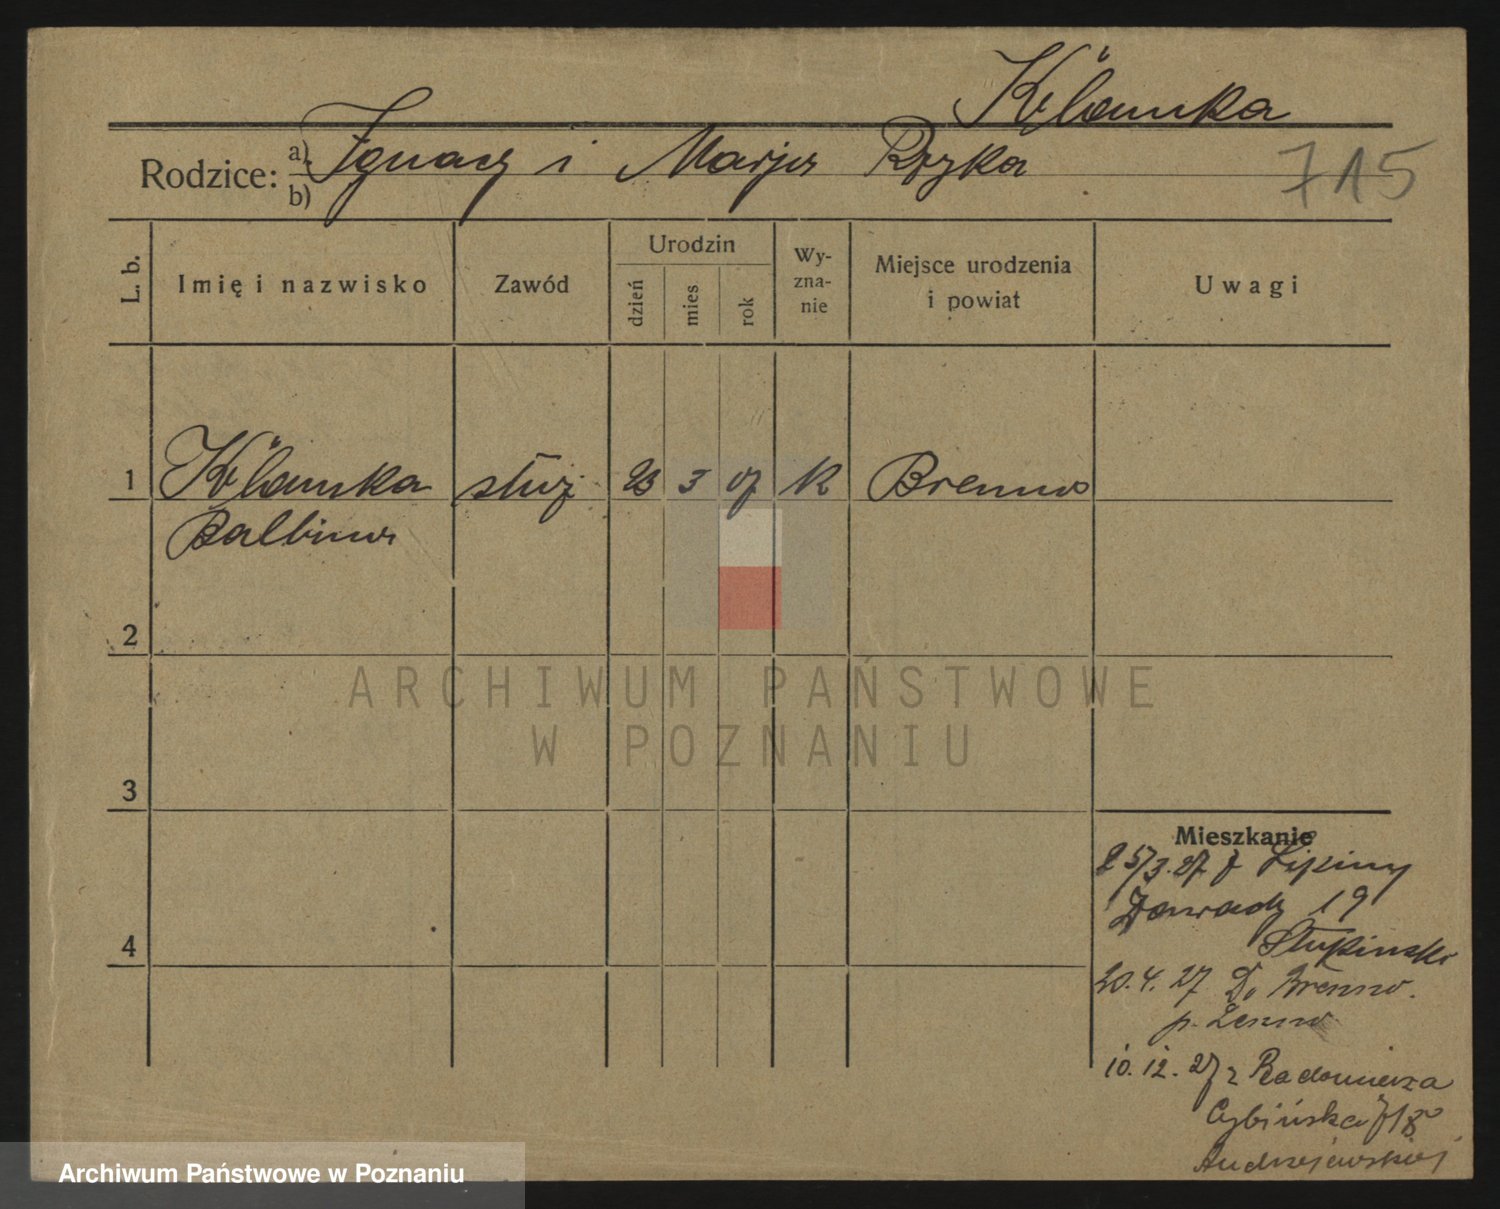 Klamka
Rodzice: a) Ignacy i Marja Ryzka
b)
715
L. b. Imię i nazwisko Zawód Urodzin dzień mies rok Wy-zna-nie Miejsce urodzenia i powiat Uwagi
1 Klamka służ 23 3 07 k Brenno
Balbina
2
ARCHIWUM PAŃSTWOWE
W POZNANIU
3
Mieszkanie
25/3.27 z Lipiny
19
Słupinski
4
20.4.27 Do Brenno.
p.
10.12.27 z Radomierza
Cybińska 7/8
Andrzejewskiej
Archiwum Państwowe w Poznaniu